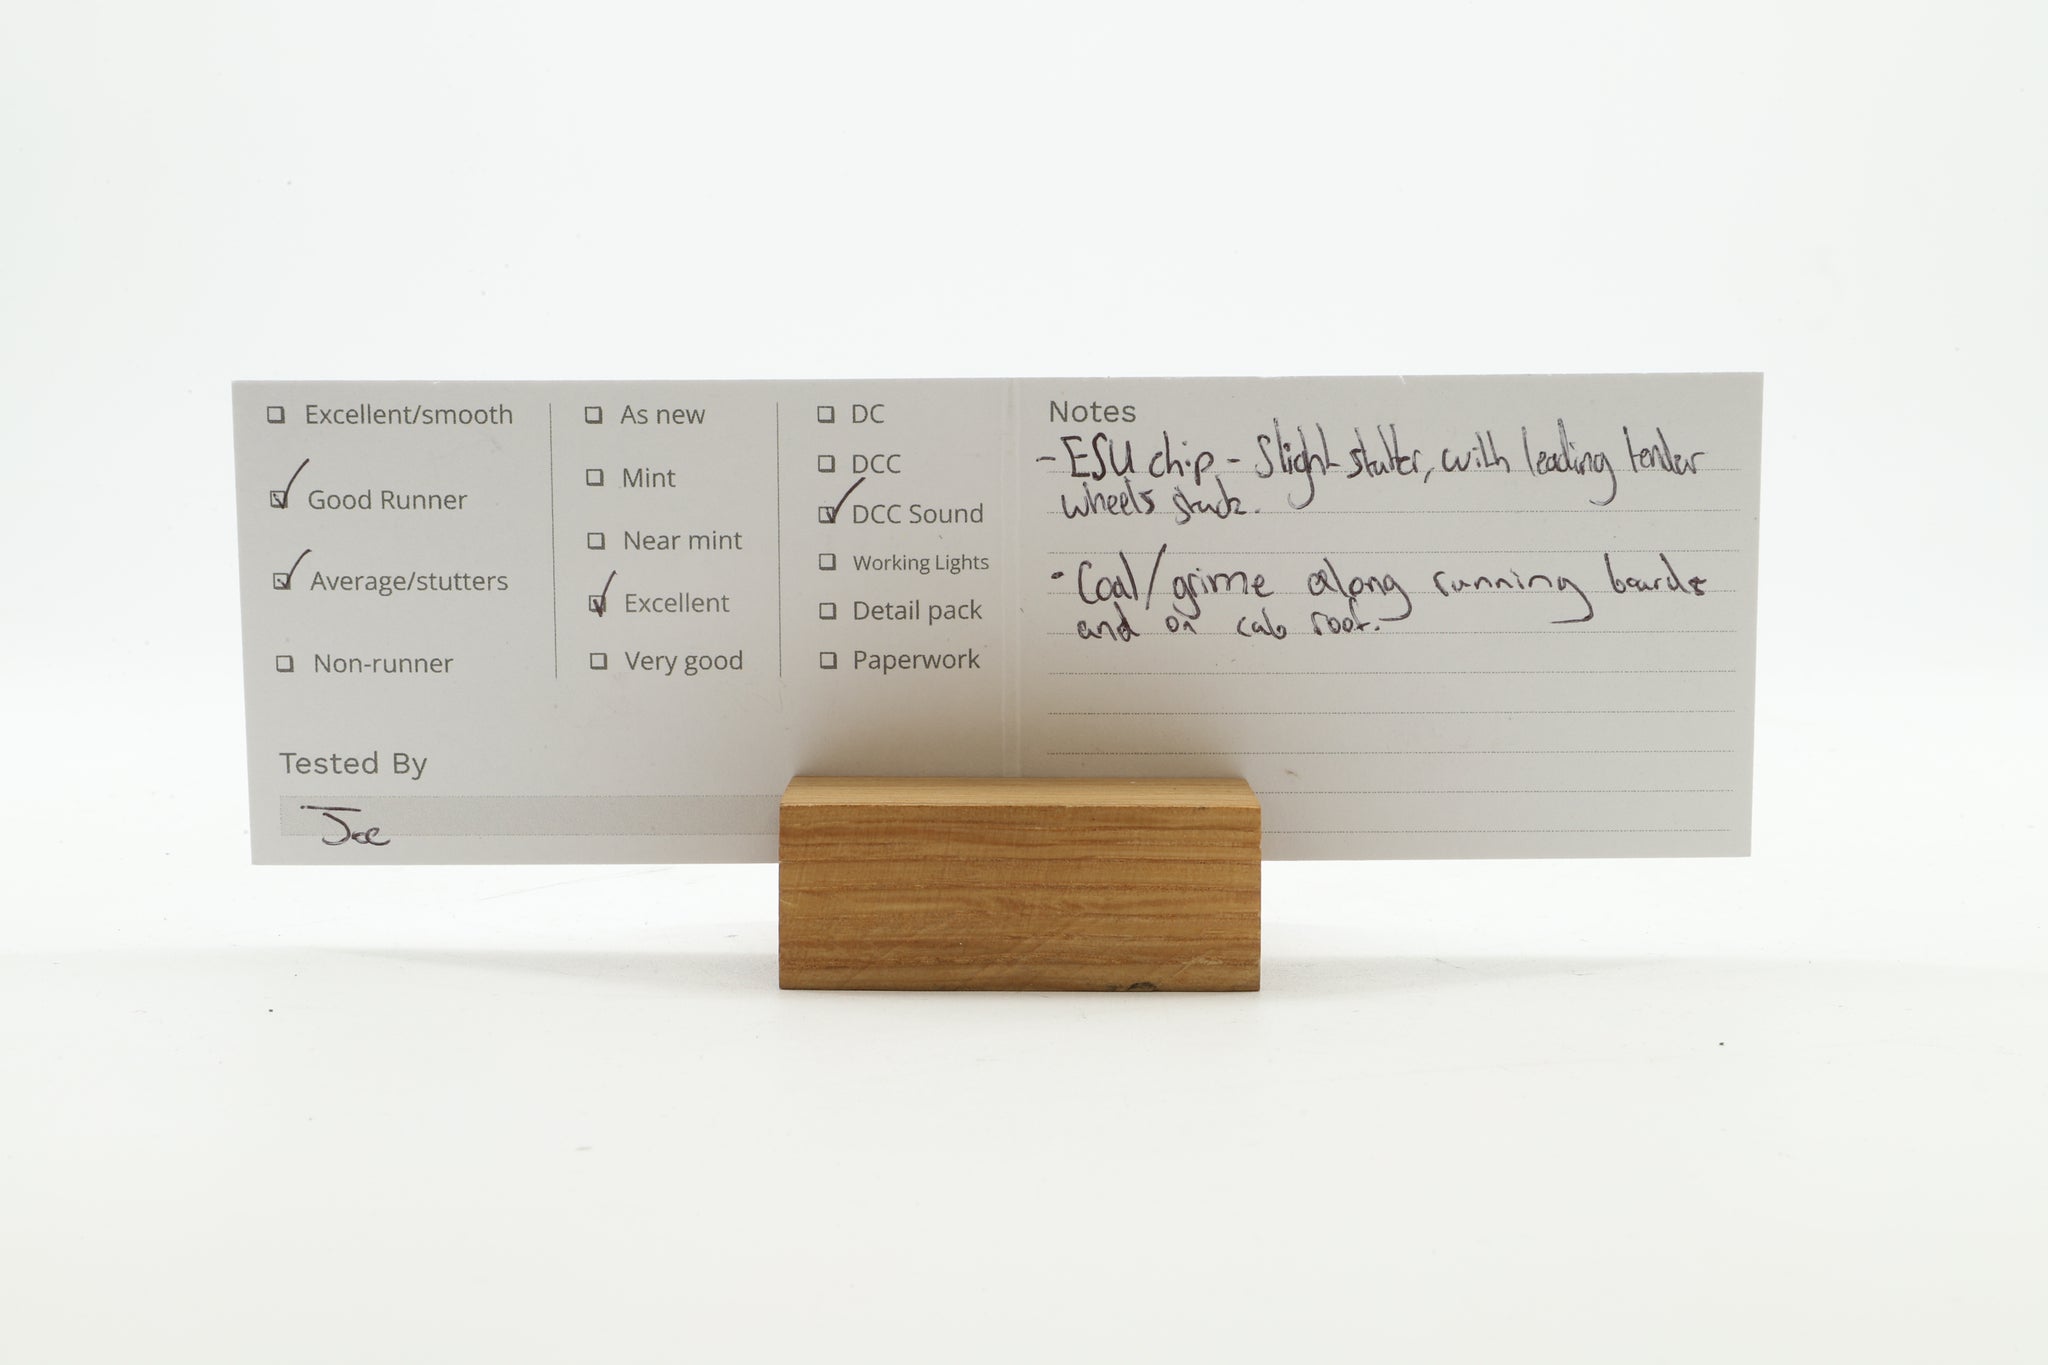 ☐ Excellent/smooth
☑ Good Runner
☑ Average/stutters
☐ Non-runner
☐ As new
☐ Mint
☐ Near mint
☑ Excellent
☐ Very good
☐ DC
☐ DCC
☑ DCC Sound
☐ Working Lights
☐ Detail pack
☐ Paperwork
Tested By
Joe
Notes
- ESU chip - Slight stutter, with leading tender
wheels stuck.
• Coal/grime along running boards
and on cab roof.